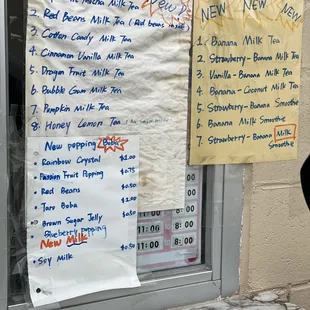 Matcha Milk Tea
2. Red Beans Milk Tea (Red beans
3. Cotton Candy Milk Tea
4. Cinnamon Vanilla Milk Tea
5. Dragon Fruit Milk Tea
6. Bubble Gum Milk Tea
7. Pumpkin Milk Tea
8. Honey Lemon Tea
New popping Boba
• Rainbow Crystal $1.00
• Passion Fruit Popping $0.75
• Red Beans $0.50
• Taro Boba $1.00
• Brown Sugar Jelly $0.50
Blueberry popping
New Milk
• Soy Milk $0.50
NEW NEW NEW
1. Banana Milk Tea
2. Strawberry - Banana Milk Tea
3. Vanilla - Banana Milk Tea
4. Banana - Coconut Milk Tea
5. Strawberry - Banana Smoothie
6. Banana Milk Smoothie
7. Strawberry - Banana Milk
Smoothie
11:00 8:00
11:00 8:00